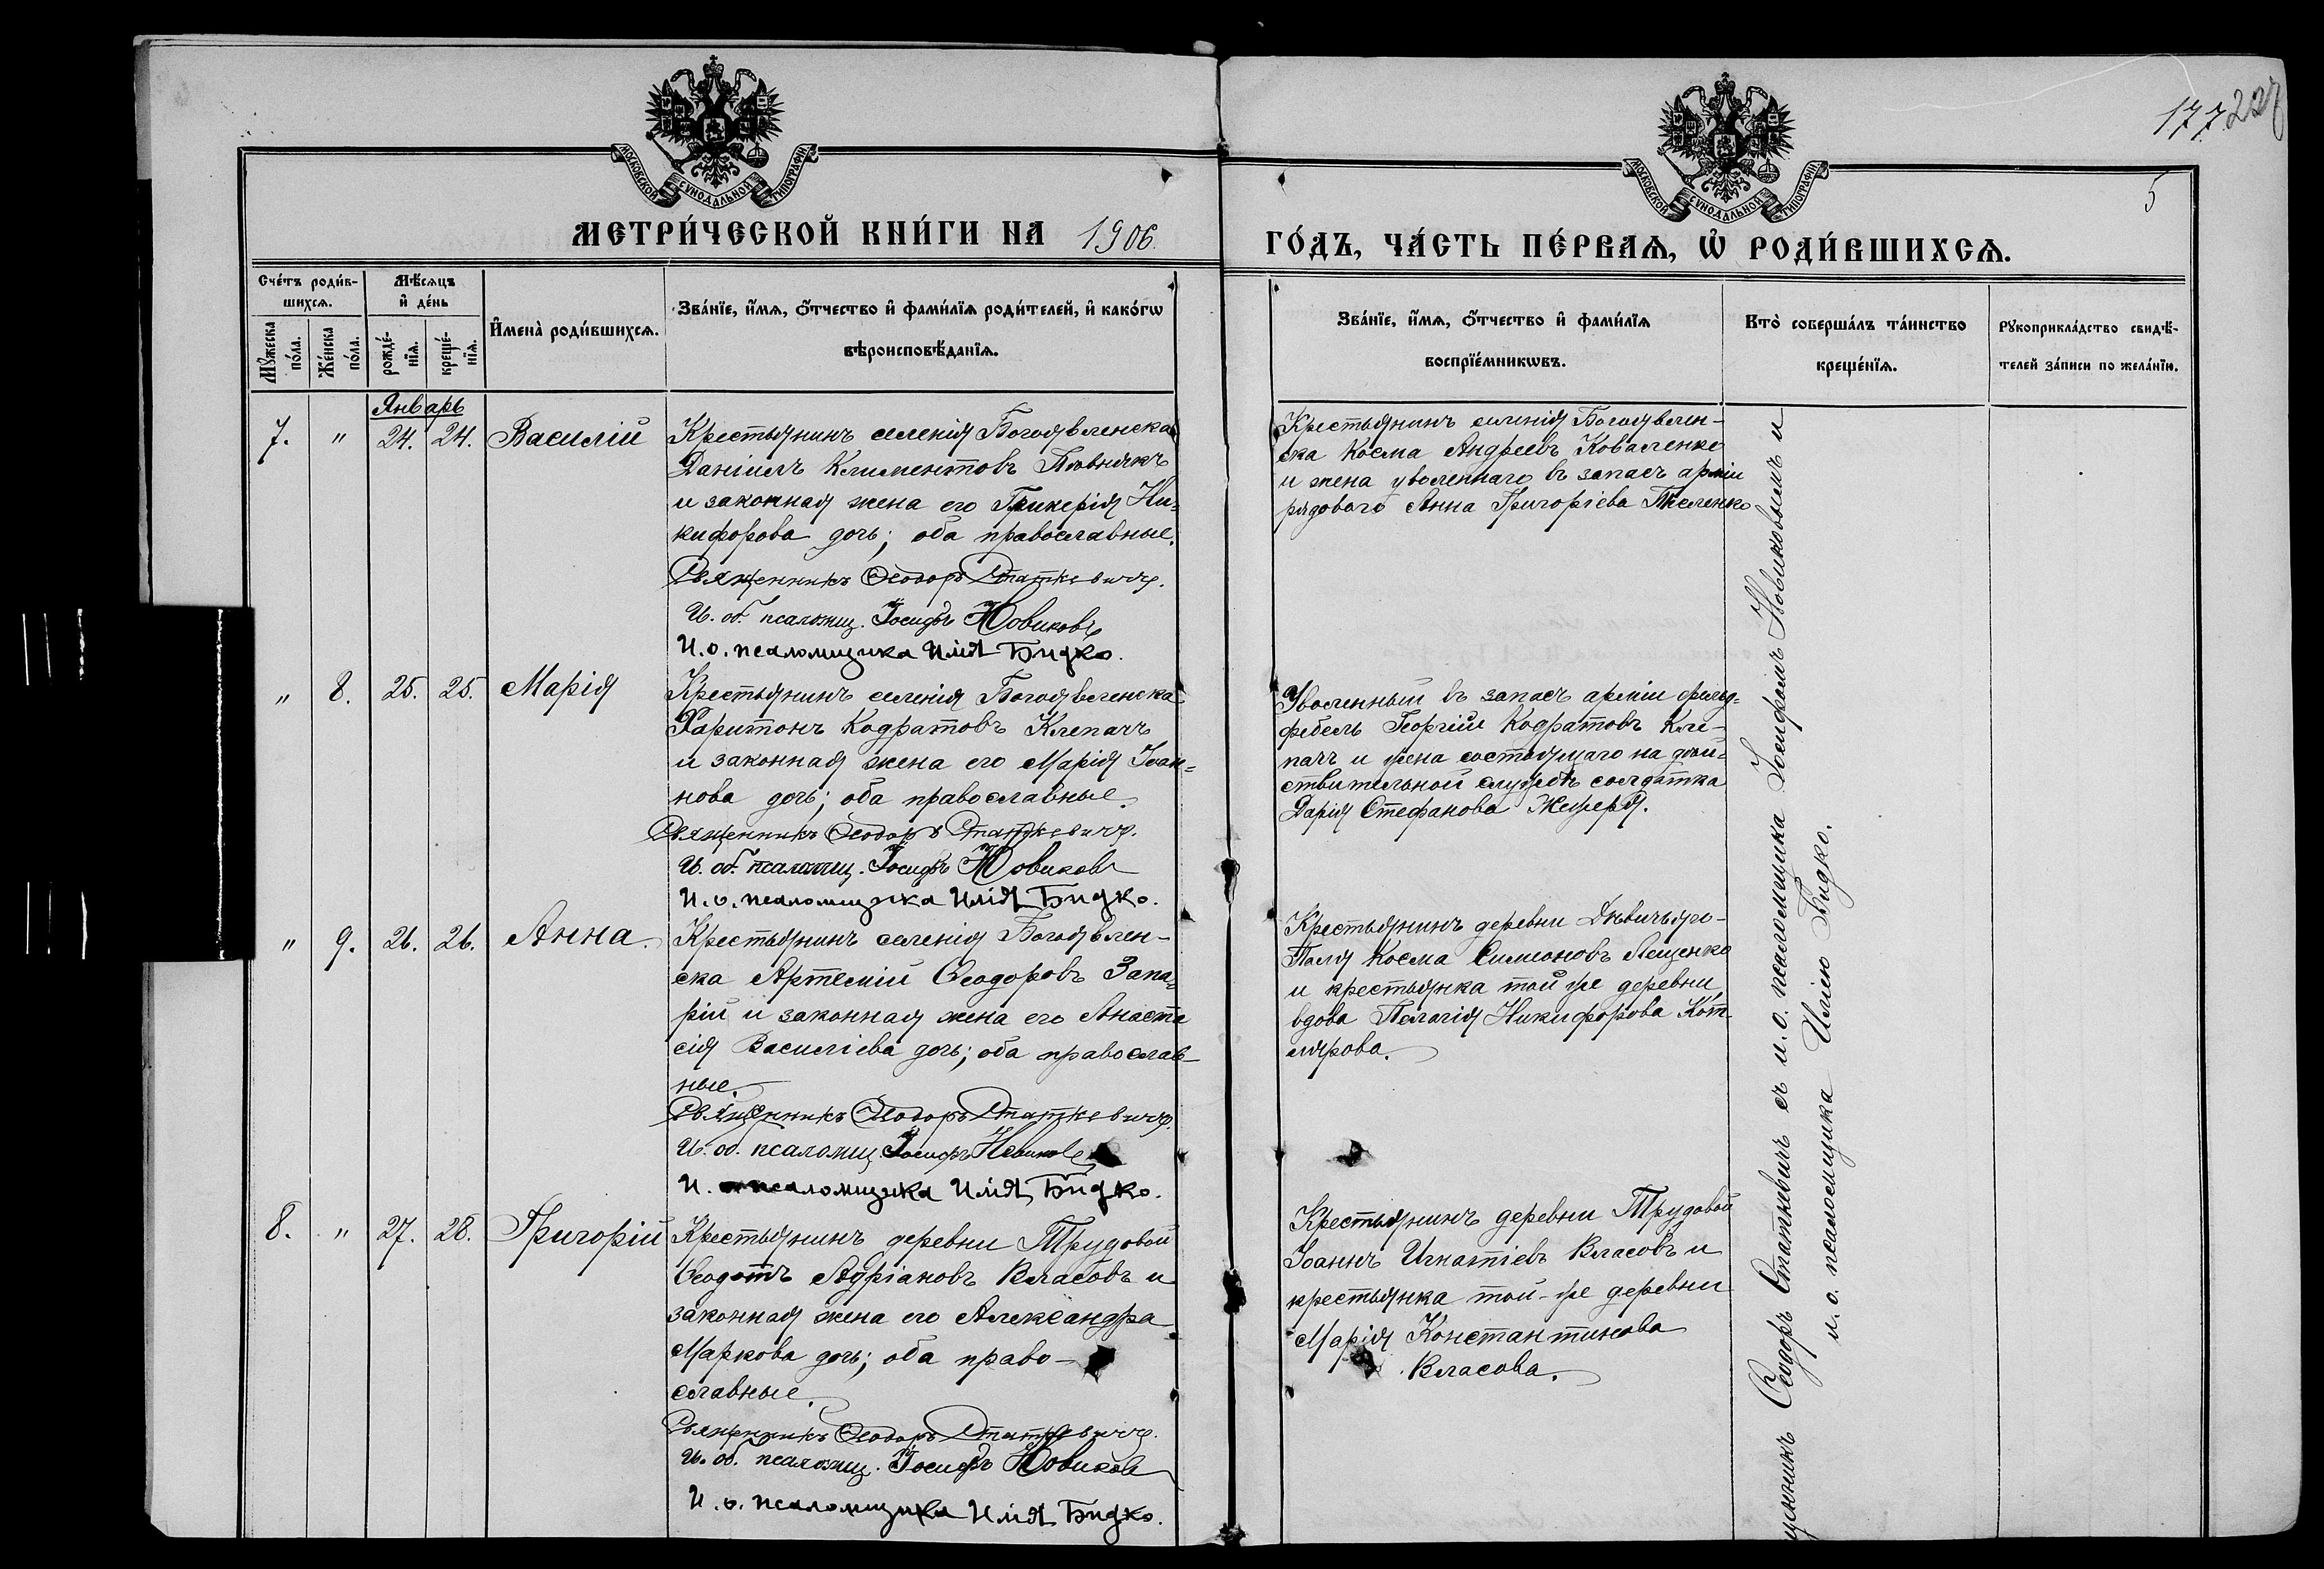 177. 227
5
МОСКОВСКОЙ СУНОДАЛЬНОЙ ТИПОГРАФІИ
МОСКОВСКОЙ СУНОДАЛЬНОЙ ТИПОГРАФІИ
МЕТРИ́ЧЕСКОЙ КНИ́ГИ НА 1906.
ГО́ДЪ, ЧА́СТЬ ПЕ́РВАѦ, Ѡ҆ РОДИ́ВШИХСѦ.
Сче́тъ роди́в-
шихсѧ.
Мꙋ́жеска
по́ла.
Же́нска
по́ла.
Мѣ́сѧцъ
и҆ де́нь
рожде́-
нїѧ.
креще́-
нїѧ.
И҆мена̀ роди́вшихсѧ.
Зва́нїе, и҆́мѧ, ѻ҆́тчество и҆ фами́лїѧ роди́телей, и҆ како́гѡ
вѣроисповѣ́данїѧ.
Зва́нїе, и҆́мѧ, ѻ҆́тчество и҆ фами́лїѧ
воспрїе́мникѡвъ.
Кто̀ соверша́лъ та́инство
креще́нїѧ.
Рꙋкоприкла́дство свидѣ́-
телей за́писи по жела́нїю.
Январь
7. " 24. 24. Василій
Крестьянинъ селенія Богоявленска
Даніилъ Климентовъ
и законная жена его Гликерія Ни-
кифорова дочь; оба православные.
Священникъ Ѳеодоръ Статкевичъ.
И. об. псаломщ. Іосифъ Новиковъ
И. о. псаломщика Илія Бидко.
Крестьянинъ селенія Богоявлен-
ска Косма Андреевъ Коваленко
и жена уволеннаго въ запасъ арміи
рядового Анна Григоріева Теленко
" 8. 25. 25. Марія
Крестьянинъ селенія Богоявленска
Харитонъ Кодратовъ Клепачъ
и законная жена его Марія Іоан-
нова дочь; оба православные.
Священникъ Ѳеодоръ Статкевичъ.
И. об. псаломщ. Іосифъ Новиковъ
И. о. псаломщика Илія Бидко.
Уволенный въ запасъ арміи фельд-
фебель Георгій Кодратовъ Кле-
пачъ и жена состоящаго на дѣй-
ствительной службѣ солдатка
Дарія Стефанова
" 9. 26. 26. Анна.
Крестьянинъ селенія Богоявлен-
ска Артемій Ѳеодоровъ Запа-
рій и законная жена его Анаста
сія Василіева дочь; оба православ-
ные.
Священникъ Ѳеодоръ Статкевичъ.
И. об. псаломщ Іосифъ Новиковъ
И. псаломщика Илія Бидко.
Крестьянинъ деревни Дѣвичьяго-
Поля Косма Симеоновъ Лещенко
и крестьянка той же деревни,
вдова Пелагія Никифорова Кот-
лярова.
8. " 27. 28. Григорій
Крестьянинъ деревни Трудовой
Ѳеодотъ Адріановъ Власовъ и
законная жена его Александра
Маркова дочь; оба право-
славные.
Священникъ Ѳеодоръ Статкевичъ.
И. об. псаломщ. Іосифъ Новиковъ
И. о. псаломщика Илія Бидко.
Крестьянинъ деревни Трудовой
Іоаннъ Игнатіевъ Власовъ и
крестьянка той-же деревни
Марія Константинова
Власова.
Ѳеодоръ Статкевичъ съ и. о. псаломщика Іосифомъ Новиковымъ и
и. о. псаломщика Иліею Бидко.